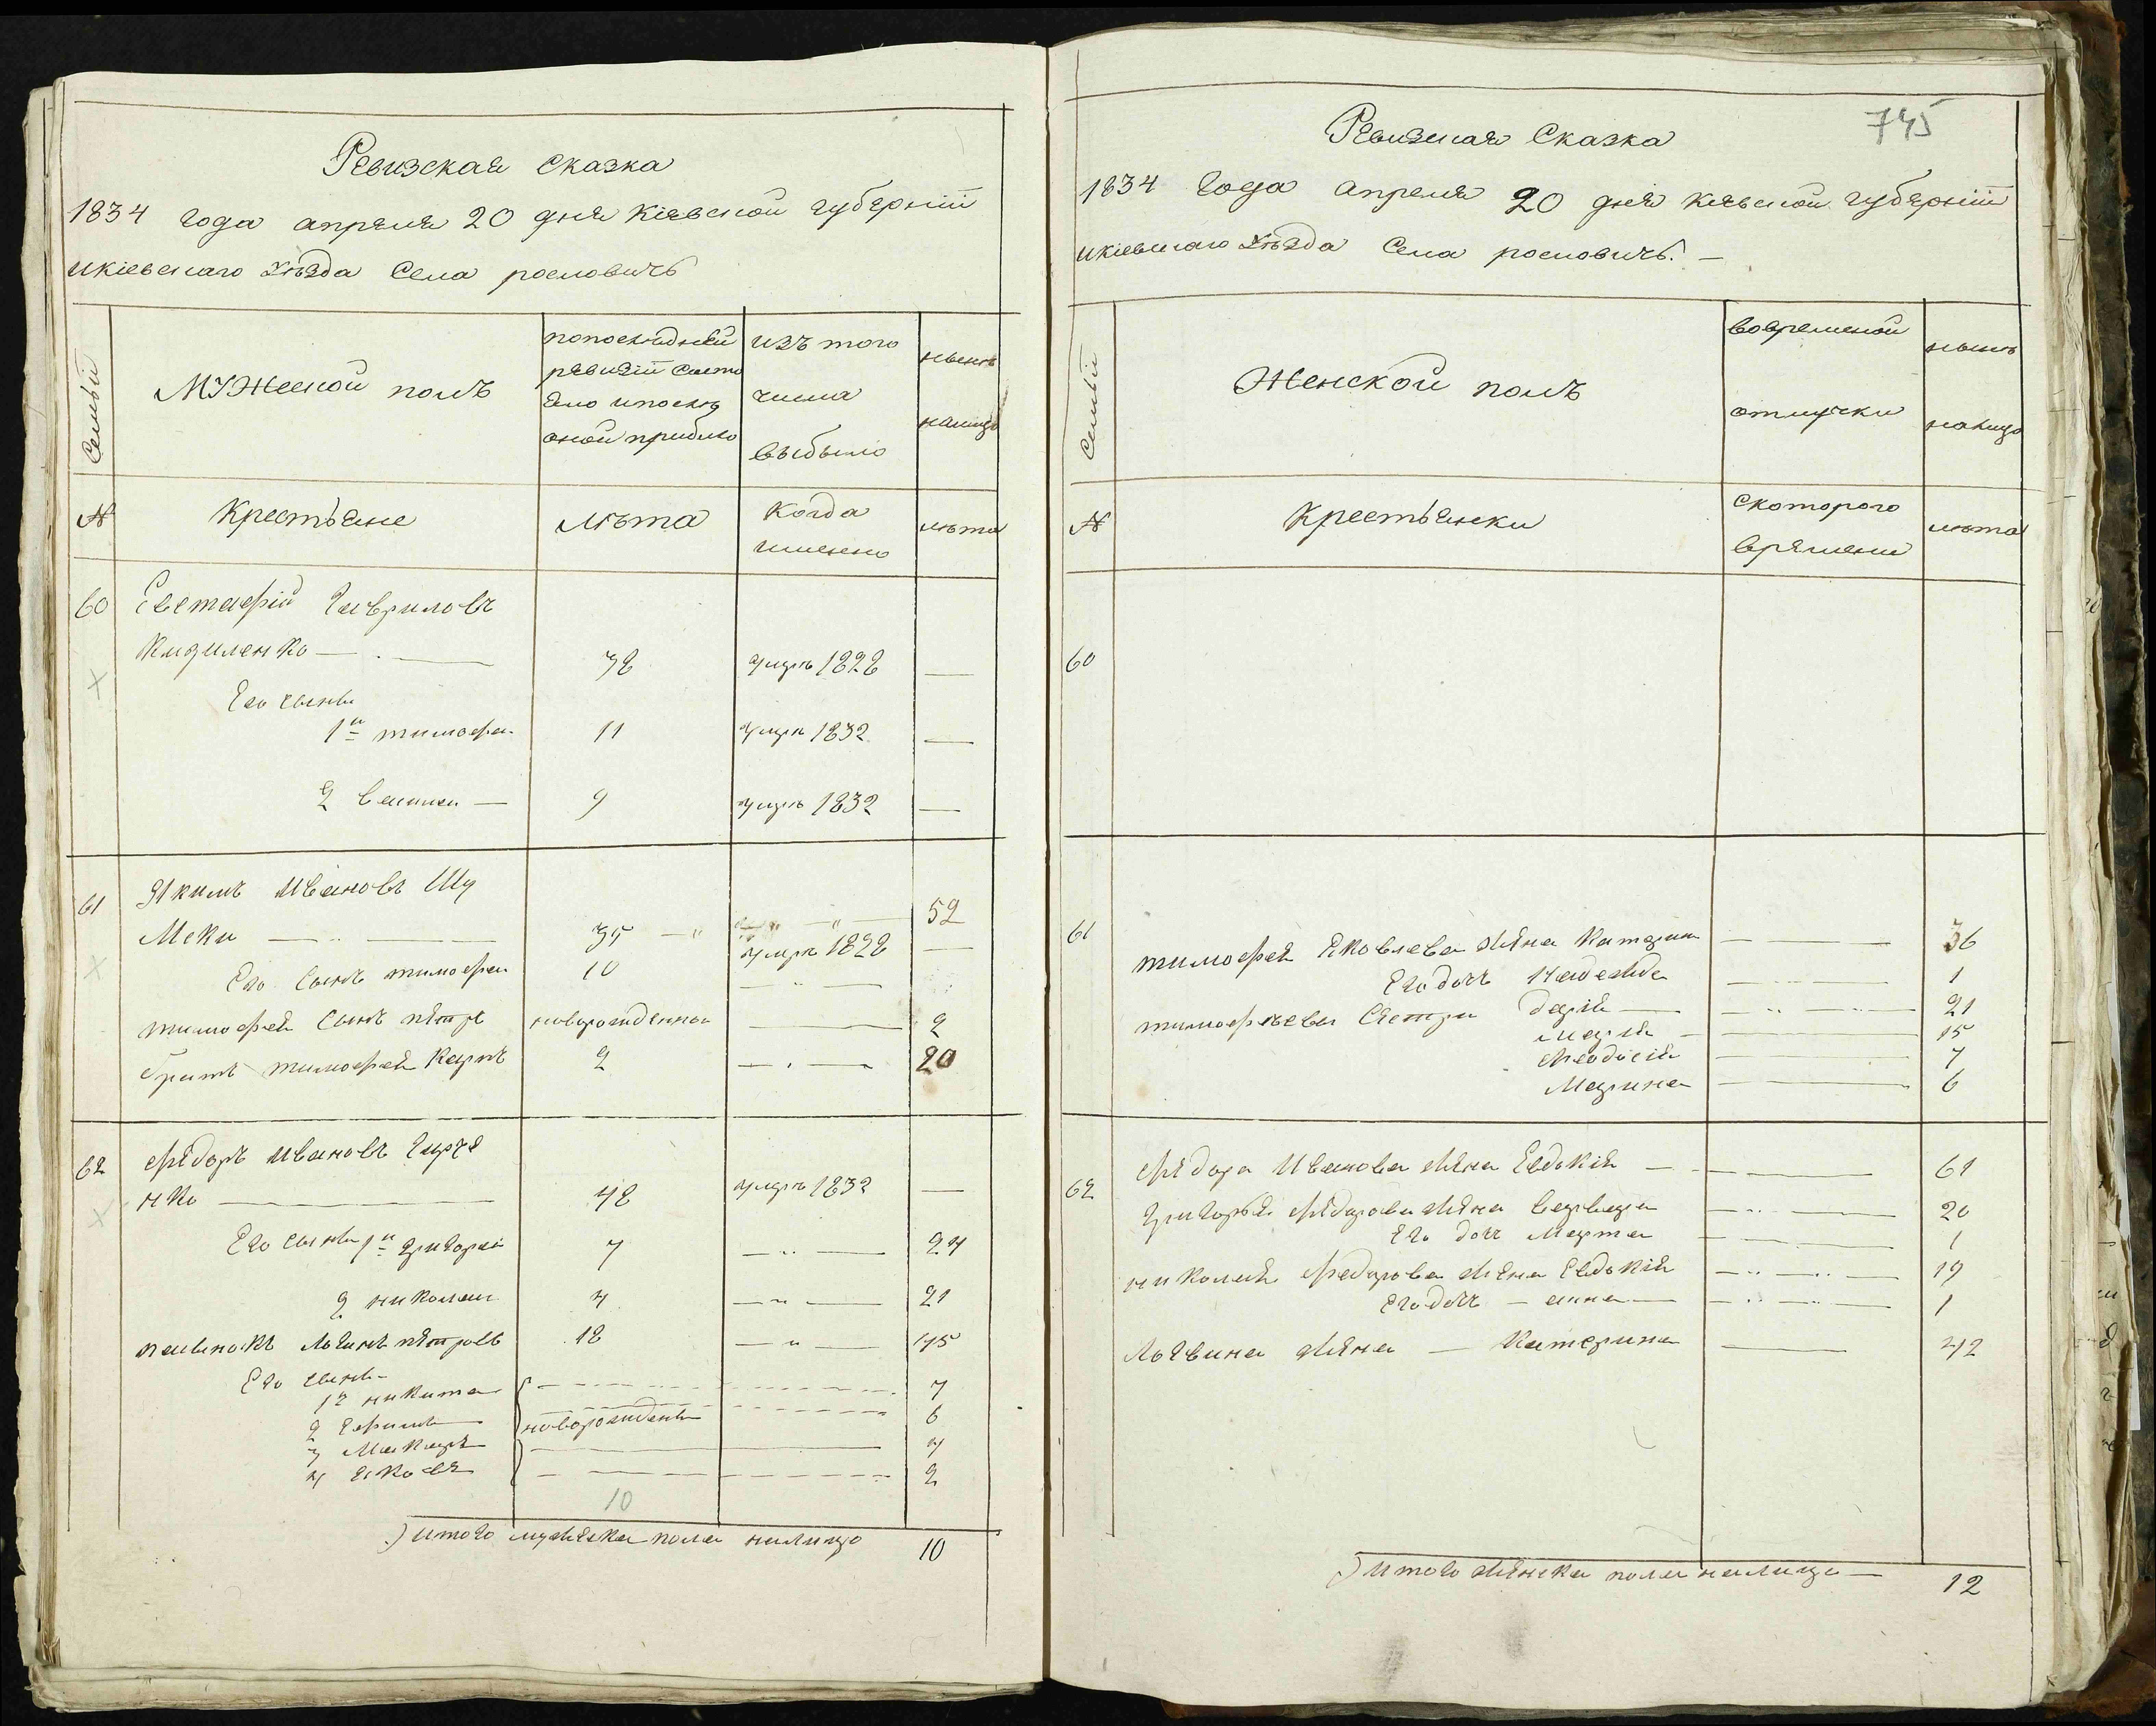 Ревизская Сказка
1834 года апреля 20 дня Кіевской губерніи
икіевскаго Уѣзда Села рословичь
Семьи
Мужеской полъ
попоследней
ревизіи состо
яло ипослѣ
оной прибыло
изъ того
числа
выбыло
нынѣ
налицо
№
Крестьяне
лѣта
Когда
именно
лѣта
60 Евстафій Гавриловъ
38 умръ 1828 —
Его сыны
1й тимофей 11 умръ 1832 —
2 василий — 9 умръ 1832 —
61 Якимъ Ивановъ Шу
Меки — 35 — 52
Его Сынъ тимофей 10 умръ 1828 —
тимофея Сынъ пётръ новорожденный — 2
Братъ тимофея Карпъ 2 — 20
62 Фёдоръ Ивановъ
нко — 48 умръ 1832 —
Его сыны 1й Григорий 7 — 24
2 николай 4 — 21
Петровъ 18 — 45
Его сыны
1й никита — 7
2 Ефимъ новорождены 6
3 Макаръ — 4
4 яковъ — 2
10
Итого мужеска пола налицо 10
745
Ревизская Сказка
1834 Года апреля 20 дня Киевской губерніи
икіевскаго Уѣзда Села рословичь. —
Семьи
Женской полъ
вовременой
отлучки
нынѣ
налицо
№
крестьянки
скоторого
времени
лѣта
60
61 тимофея Яковлева жена Катерина — 36
Его дочь Надежда — 1
тимофѣевы Сестры Дарія — 21
Марія — 15
Феодосія — 7
Марина — 6
62 Фёдора Иванова жена Евдокія — 61
Григорья Фёдорова жена Варвара — 20
Его дочь Марта — 1
николая Федорова жена Евдокія — 19
Его дочь — анна — 1
жена — Катерина — 42
Итого женска пола налицо — 12